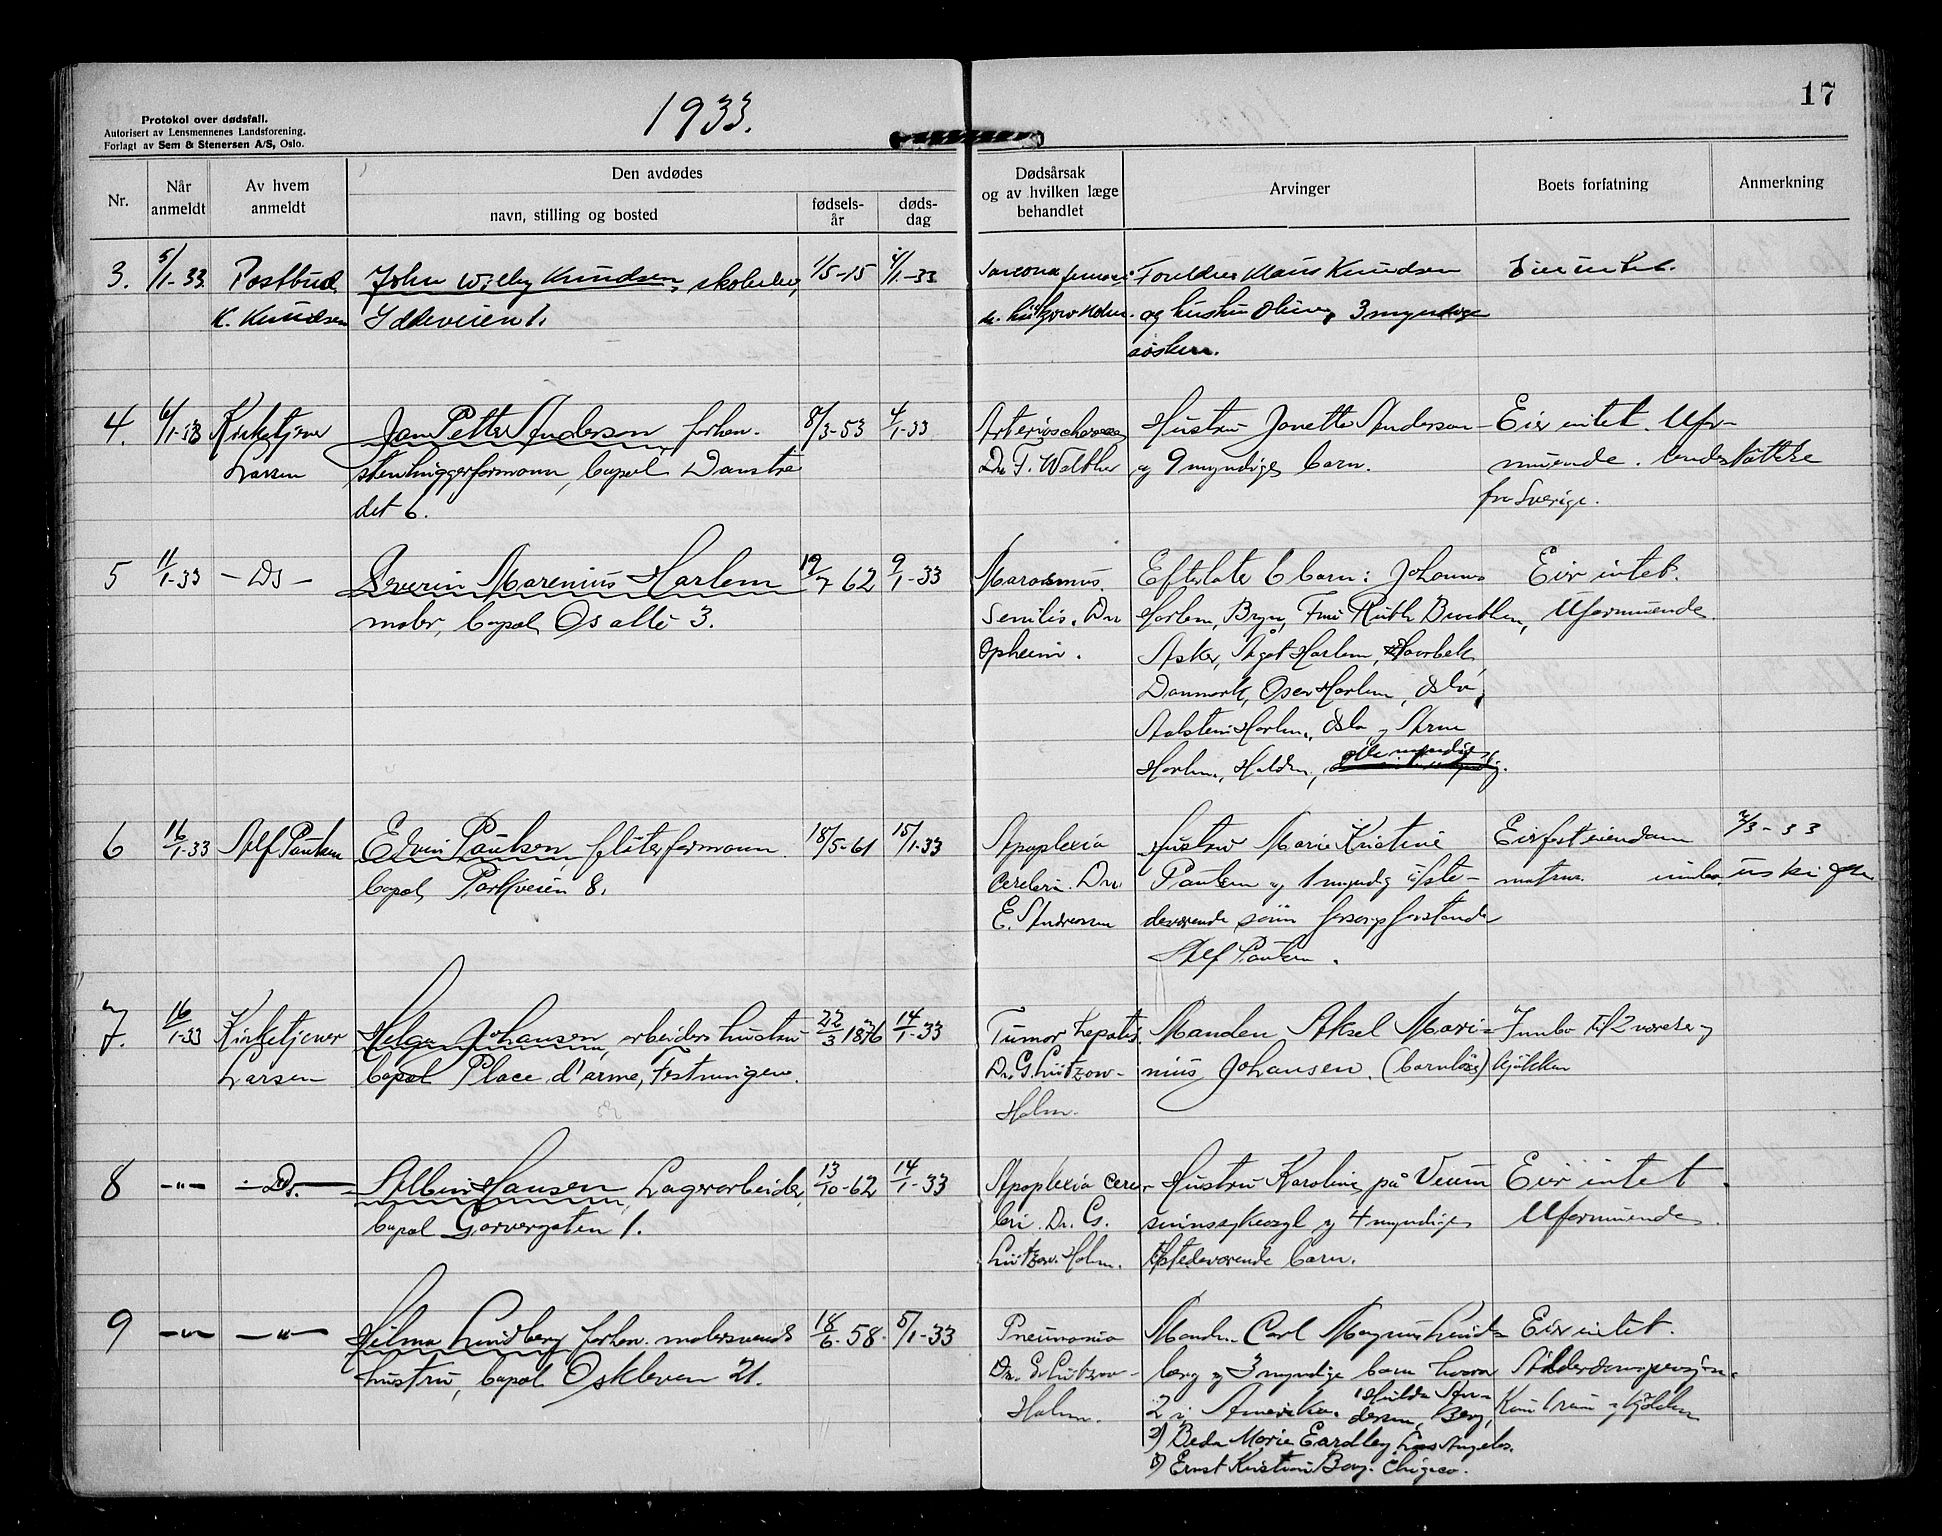 1933.
17
Protokol over dødsfall.
Autorisert av Lensmennenes Landsforening.
Forlagt av Sem & Stenersen A/S, Oslo.
Nr.
Når anmeldt
Av hvem anmeldt
Den avdødes
navn, stilling og bosted
fødselsår
dødsdag
Dødsårsak og av hvilken læge behandlet
Arvinger
Boets forfatning
Anmerkning
3. 5/1-33 Postbud John Willy Knudsen, 1/5-15 4/1-33 Foreldre Klaus Knudsen Eier intet.
K. Knudsen Iddeveien 1. og hustru 3 myndige
søsken.
4. 6/1-33 Kirketjener Jan Petter Anderson forhen. 8/3-53 4/1-33 Hustru Janette Anderson Eier intet. Ufor-
Larsen stenhuggerformann, bopel Danske Dr. F. Walther og 9 myndige barn. muende.
det 6. fra Sverige.
5 11/1-33 - Ds - Severin Marenius Harlem 19/7 62 9/1-33 Marasmus Efterlater 6 barn: Johannes Eier intet.
maler, bopel Os allé 3. Senilis. Dr. Harlem, Bryn, Fru Ruth Uformuende.
Opheim. Asker, Ågot Harlem,
Danmark, Harlem, Oslo,
Harlem, Oslo og Arne
Harlem, Halden, alle myndig.
6 16/1-33 Alf Paulsen Edvin Paulsen, fløterformann 18/5-61 15/1-33 Apoplexia Hustru Marie Kristine Eier fast eiendom 2/3-33
bopel Parkveien 8. Cerebri. Dr. Paulsen og 1 myndig tilste- uskifte
E. Andressen deværende sønn forsorgsforstander
Alf Paulsen.
7. 16/1-33 Kirketjener Helga Johansen, arbeiders hustru 22/3 1876 14/1-33 Tumor hepatis. Manden Aksel Mari- Innbo til 2 værelser og
Larsen bopel Place d'arme, Festningen. Dr. G. Lützow- nius Johansen. (barnløs) kjøkken
Holm.
8 -"- - Ds. - Albin Hansen, Lagerarbeider, 13/10-62 14/1-33 Apoplexia Cere- Hustru Karoline på Veum Eier intet.
bopel Garvergaten 1. bri. Dr. G. sinnsykeasyl og 4 myndige Uformuende.
Lützow-Holm. tilstedeværende barn.
9 -"- -"- Hilma Lindberg forhen. malersvends 18/6-58. 5/1-33 Pneumonia Manden Carl Magnus Lind- Eier intet.
hustru, bopel Oskleven 21. Dr. G. Lützow- berg og 3 myndige barn hvorav Alderdomspensjon.
Holm. 2 i Amerika. 1 Hulda An- Kun 1 rum og kjøkken
dersen, Berg,
2) Beda Marie Eardley Los Angeles.
3) Ernst Kristian Berg. Chigaco.